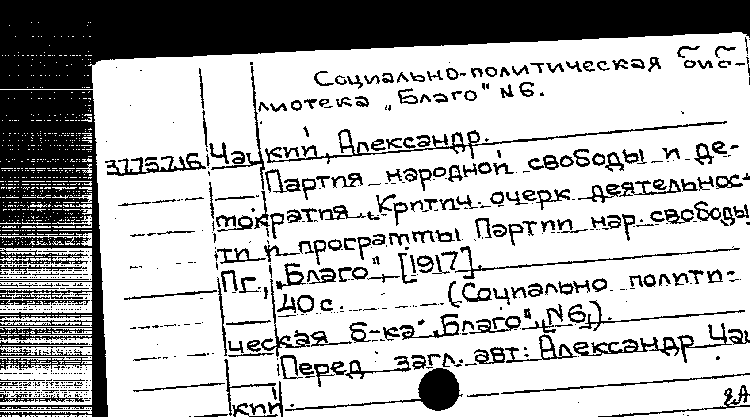 Социально-политическая биб-
лиотека „Благо" №6.
37.75.7.16. Чацкий, Александр.
Партия народной свободы и де-
мократия. „Критич. очерк деятельнос-
ти и программы Партии нар. свободы
Пг., „Благо", [1917].
40 с. (Социально полити-
ческая б-ка „Благо", №6).
Перед загл. авт: Александр Чац
кий.